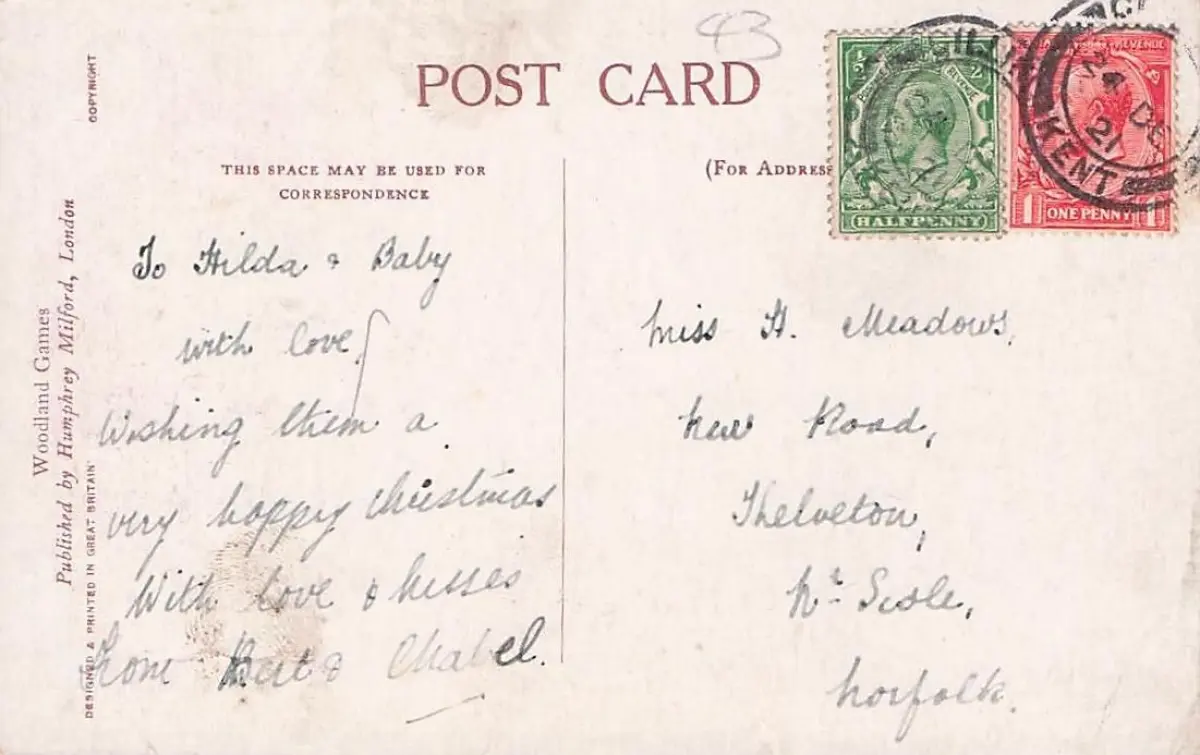 43
POST CARD
COPYRIGHT
Woodland Games
Published by Humphrey Milford, London
DESIGNED & PRINTED IN GREAT BRITAIN
THIS SPACE MAY BE USED FOR
CORRESPONDENCE
To Hilda & Baby
with love
Wishing them a
very happy Christmas
With love & kisses
From Bert &
(FOR ADDRESS
HALFPENNY
REVENUE
1 ONE PENNY 1
KENT
DE
21
Miss H. Meadows,
New Road,
Thelveton,
Nr. Scole,
Norfolk.